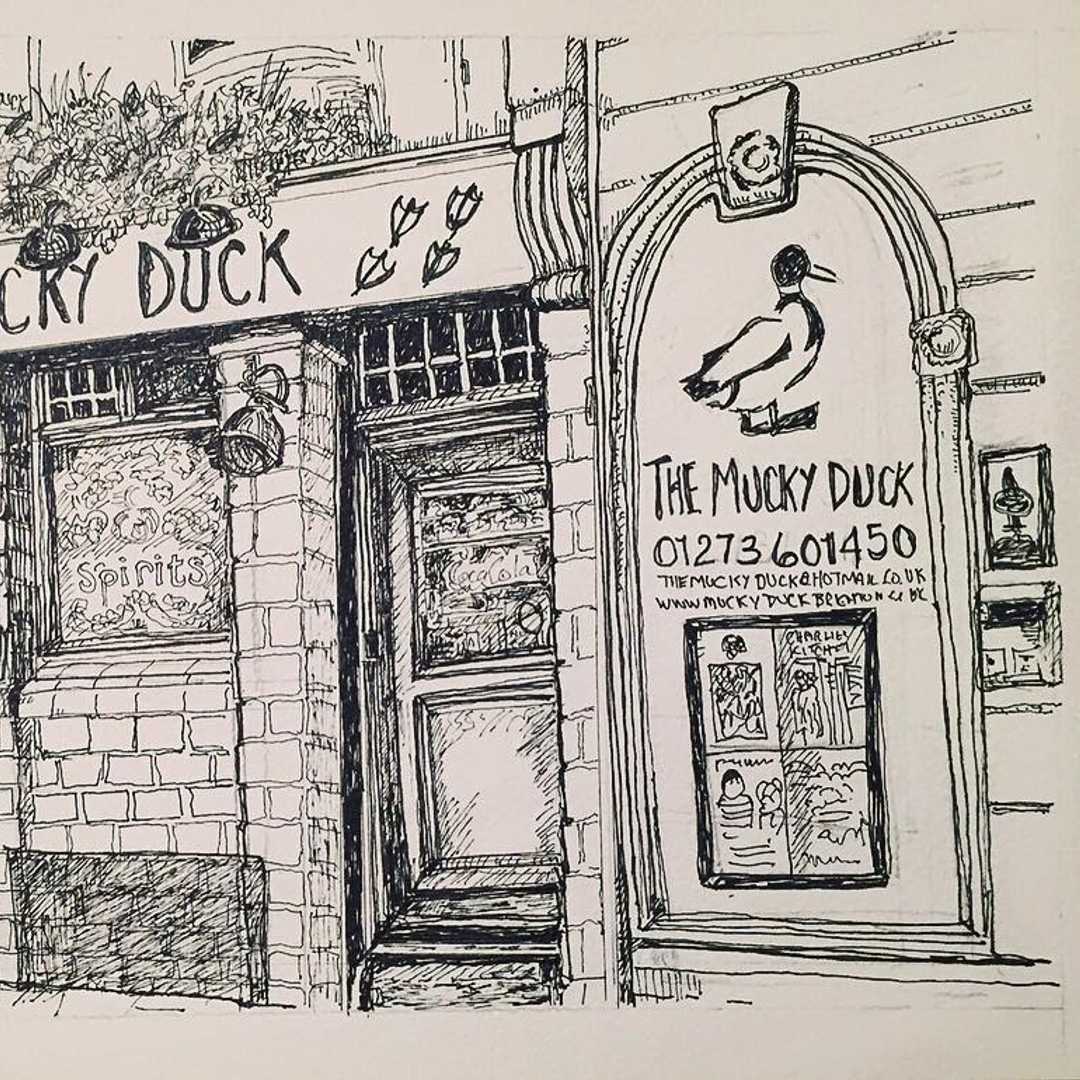 CKY DUCK
Spirits
CocaCola
THE MUCKY DUCK
01273 601450
THEMUCKYDUCK@HOTMAIL.CO.UK
WWW.MUCKYDUCKBRIGHTON.CO.UK
CHARLIE'S
KITCHEN